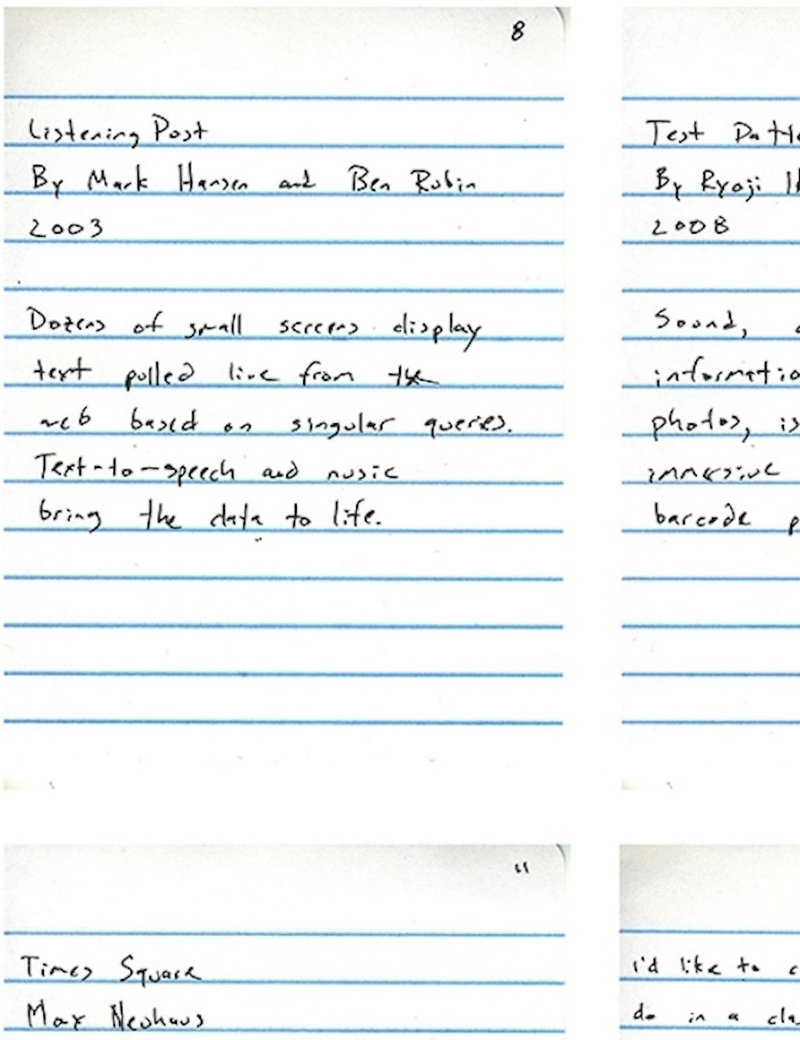 8
Listening Post
By Mark Hansen and Ben Rubin
2003
Dozens of small screens display
text pulled live from the
web based on singular queries.
Text-to-speech and music
bring the data to life.
Test
By Ryoji
2008
Sound,
photos, is
immersive
barcode
11
Times Square
Max Neuhaus
I'd like to
do in a